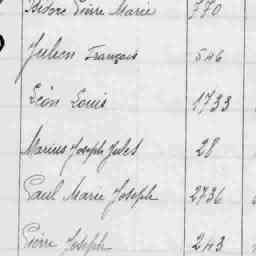 Isidore Pierre Marie 770
Julien François 546
Léon Louis 1733
Marius Joseph Jules 28
Paul Marie Joseph 2736
Pierre Joseph 243